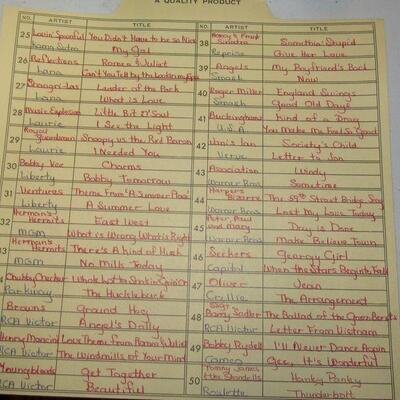 A QUALITY PRODUCT
NO. ARTIST TITLE
25 Lovin' Spoonful You Didn't Have to be so Nice
Kama Sutra My Gal
26 Reflections Romeo & Juliet
Lana Can't You Tell By the Look in my Eyes
27 Shangri-las Leader of the Pack
Lana What is Love
28 Music Explosion Little Bit O' Soul
Laurie I See the Light
29 Royal Guardsmen Snoopy vs the Red Baron
Laurie I Needed You
30 Bobby Vee Charms
Liberty Bobby Tomorrow
31 Ventures Theme From "A Summer Place"
Liberty A Summer Love
32 Herman's Hermits East West
MGM What is Wrong What is Right
33 Herman's Hermits There's A Kind of Hush
MGM No Milk Today
Chubby Checker Whole Lotta Shakin' Goin' On
Parkway The Hucklebuck
Browns Ground Hog
RCA Victor Angel's Dolly
Henry Mancini Love Theme From Romeo & Juliet
RCA Victor The Windmills of Your Mind
Youngbloods Get Together
RCA Victor Beautiful
NO. ARTIST TITLE
38 Nancy & Frank Sinatra Somethin' Stupid
Reprise Give Her Love
39 Angels My Boyfriend's Back
Smash Now
40 Roger Miller England Swings
Smash Good Old Days
41 Buckinghams Kind of a Drag
U.S.A. You Make Me Feel So Good
42 Janis Ian Society's Child
Verve Letter to Jon
43 Association Windy
Warner Bros Sometime
44 Harpers Bizarre The 59th Street Bridge Song
Warner Bros Lost My Love Today
45 Peter, Paul and Mary Day is Done
Warner Bros Make Believe Town
46 Seekers Georgy Girl
Capitol When the Stars Begin to Fall
47 Oliver Jean
Crewe The Arrangement
48 SSgt Barry Sadler The Ballad of the Green Berets
RCA Victor Letter From Vietnam
49 Bobby Rydell I'll Never Dance Again
Cameo Gee, It's Wonderful
50 Tommy James & the Shondells Hanky Panky
Roulette Thunderbolt